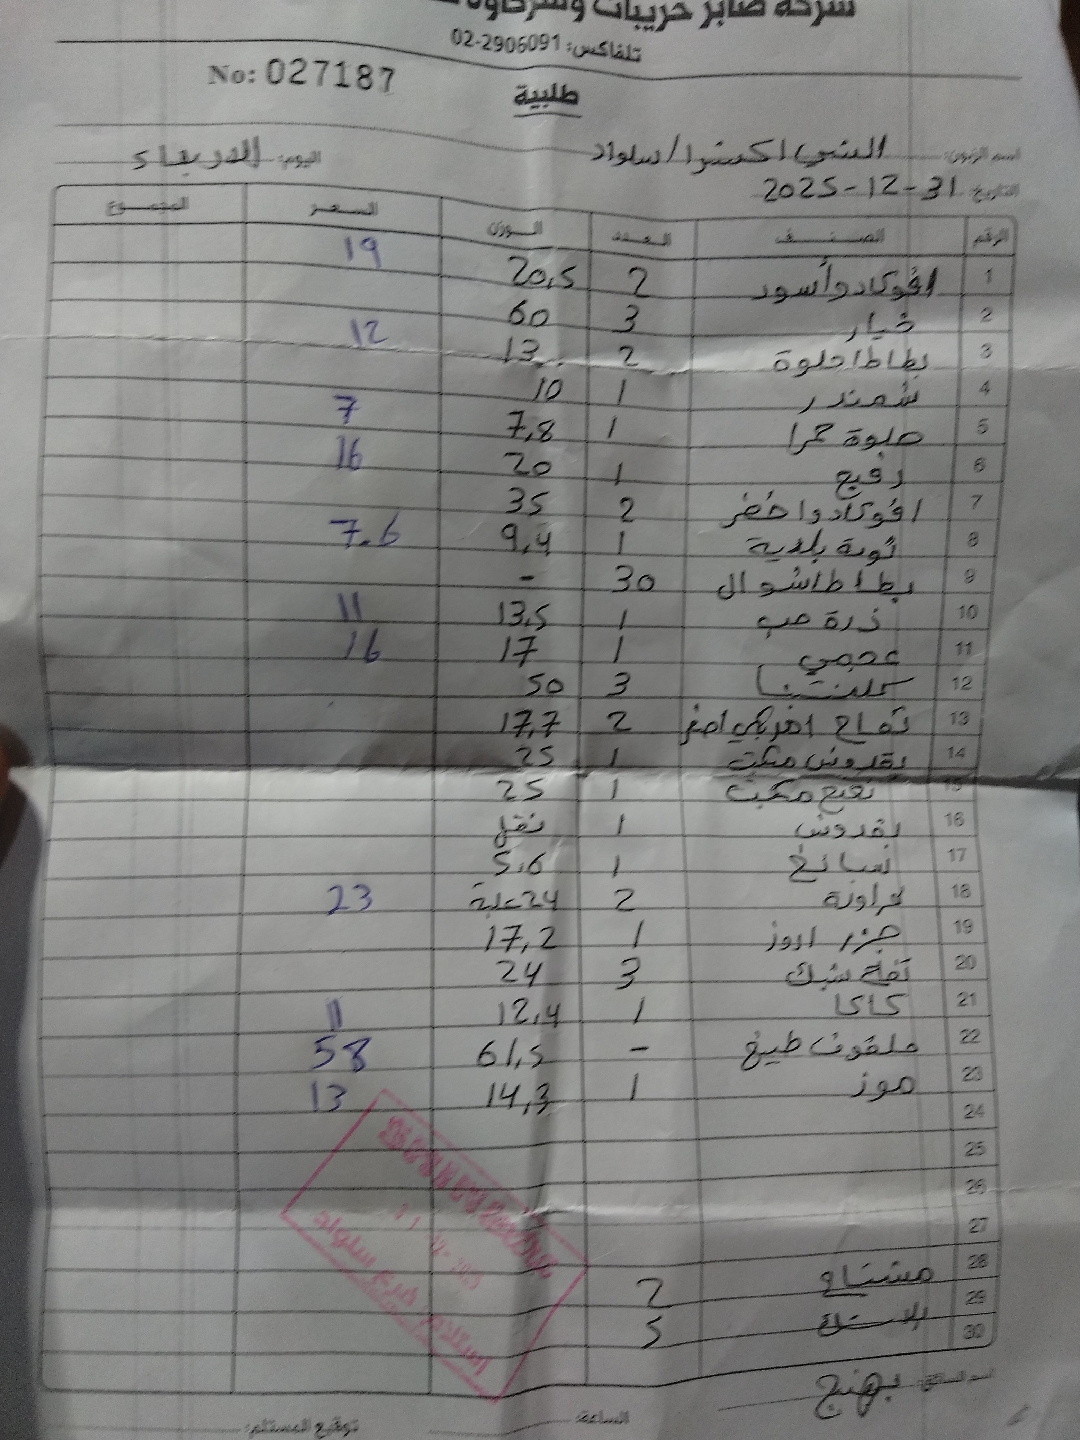 شركة صابر حريبات وشركاؤه
تلفاكس: 02-2906091
No: 027187
طلبية
اسم الزبون: الشني اكسترا / سلواد اليوم: الاربعاء
التاريخ: 31-12-2025
الرقم الصنف العدد الوزن السعر المجموع
1 افوكادو أسود 2 20,5 19
2 خيار 3 60
3 بطاطا حلوة 2 13 12
4 شمندر 1 10
5 حلوة حمرا 1 7,8 7
6 رفيع 1 20 16
7 افوكادو اخضر 2 35
8 ثومة بلدية 1 9,4 7.6
9 بطاطا شوال 30 -
10 ذرة حب 1 13,5 11
11 عجمي 1 17 16
12 كلمنتينا 3 50
13 تفاح امريكي اصفر 2 17,7
14 بقدونس مكبت 1 25
15 نعنع مكبت 1 25
16 بقدونس 1 نقل
17 سبانخ 1 5,6
18 فراولة 2 24 علبة 23
19 جزر اروز 1 17,2
20 تفاح شبك 3 24
21 كاكا 1 12,4 11
22 ملفوف طبيخ - 61,5 58
23 موز 1 14,3 13
24
25
26
27
28 مشتاح 2
29 بلاستك 5
30
استلام فرع سلواد
اسم السائق: بهيج
الساعة: توقيع المستلم: